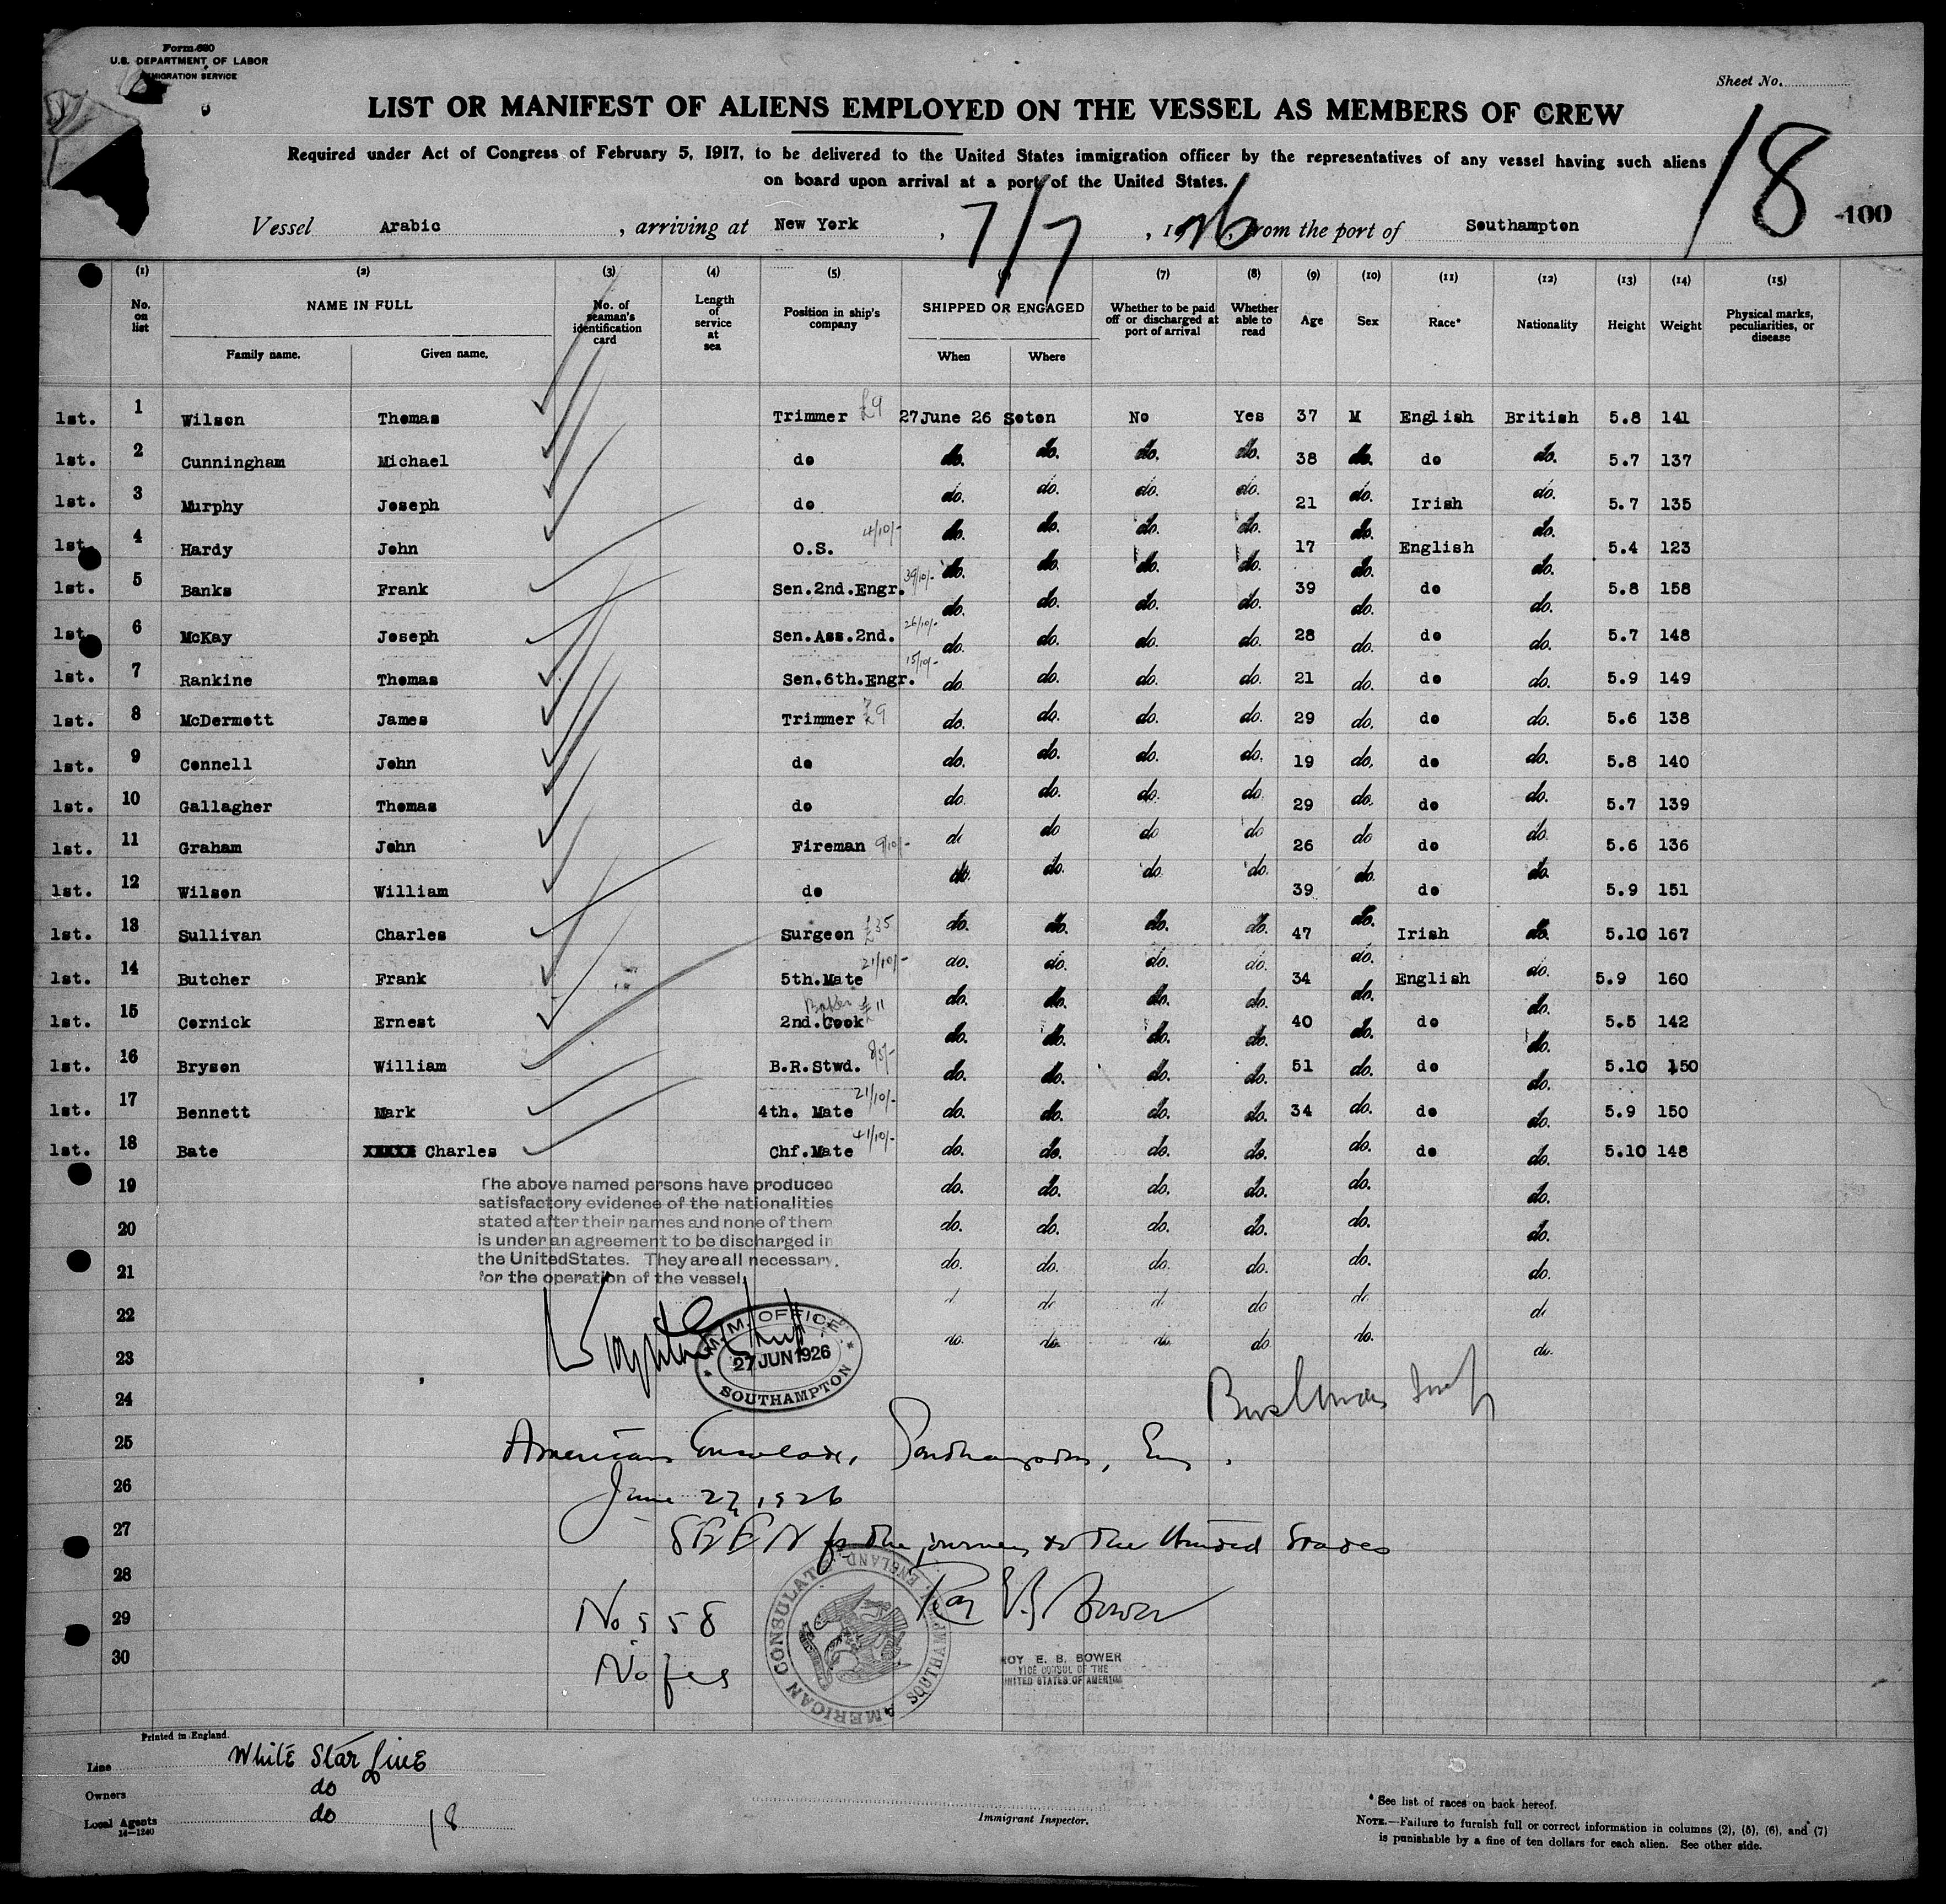 Form 680
U.S. DEPARTMENT OF LABOR
IMMIGRATION SERVICE
Sheet No.
LIST OR MANIFEST OF ALIENS EMPLOYED ON THE VESSEL AS MEMBERS OF CREW
Required under Act of Congress of February 5, 1917, to be delivered to the United States immigration officer by the representatives of any vessel having such aliens
on board upon arrival at a port of the United States.
18
Vessel Arabic, arriving at New York, 7/7, 1926, from the port of Southampton
100
(1) (2) (3) (4) (5) (7) (8) (9) (10) (11) (12) (13) (14) (15)
No. on list NAME IN FULL Family name. Given name. No. of seaman's identification card Length of service at sea Position in ship's company SHIPPED OR ENGAGED When Where Whether to be paid off or discharged at port of arrival Whether able to read Age Sex Race* Nationality Height Weight Physical marks, peculiarities, or disease
1st. 1 Wilson Thomas Trimmer £9 27June 26 Soton No Yes 37 M English British 5.8 141
1st. 2 Cunningham Michael do do. do. do. do. 38 do. do do. 5.7 137
1st. 3 Murphy Joseph do do. do. do. do. 21 do. Irish do. 5.7 135
1st. 4 Hardy John O.S. 4/10/- do. do. do. do. 17 do. English do. 5.4 123
1st. 5 Banks Frank Sen.2nd.Engr. 39/10/- do. do. do. do. 39 do. do do. 5.8 158
1st. 6 McKay Joseph Sen.Ass.2nd. 26/10/- do. do. do. do. 28 do. do do. 5.7 148
1st. 7 Rankine Thomas Sen.6th.Engr. 15/10/- do. do. do. do. 21 do. do do. 5.9 149
1st. 8 McDermott James Trimmer £9 do. do. do. do. 29 do. do do. 5.6 138
1st. 9 Connell John do do. do. do. do. 19 do. do do. 5.8 140
1st. 10 Gallagher Thomas do do. do. do. do. 29 do. do do. 5.7 139
1st. 11 Graham John Fireman 9/10/- do do do do 26 do do do. 5.6 136
1st. 12 Wilson William do do. do. do. do. 39 do. do do. 5.9 151
1st. 13 Sullivan Charles Surgeon £35 do. do. do. do. 47 do. Irish do. 5.10 167
1st. 14 Butcher Frank 5th.Mate 21/10/- do. do. do. do. 34 do. English do. 5.9 160
1st. 15 Cornick Ernest 2nd.Cook £11 do. do. do. do. 40 do. do do. 5.5 142
1st. 16 Bryson William B.R.Stwd. 8/5/- do. do. do. do. 51 do. do do. 5.10 150
1st. 17 Bennett Mark 4th. Mate 21/10/- do. do. do. do. 34 do. do do. 5.9 150
1st. 18 Bate XXXXX Charles Chf.Mate 41/10/- do. do. do. do. do. do do. 5.10 148
19 do. do. do. do. do. do.
20 do. do. do. do. do. do.
21 do. do. do. do. do. do.
22 do do do do do
23 do. do. do. do do. do.
24
25
26
27
28
29
30
The above named persons have produced
satisfactory evidence of the nationalities
stated after their names and none of them
is under an agreement to be discharged in
the United States. They are all necessary.
for the operation of the vessel.
M.M. OFFICE
27 JUN 1926
SOUTHAMPTON
American Consulate, Southampton, Eng.
June 27, 1926
SEEN for the journey to the United States
Roy E. B. Bower
No 558
No fee
AMERICAN CONSULATE SOUTHAMPTON ENGLAND
ROY E. B. BOWER
VICE CONSUL OF THE
UNITED STATES OF AMERICA
Printed in England.
Line White Star Line
Owners do
Local Agents do
14—1240
18
Immigrant Inspector.
* See list of races on back hereof.
NOTE.—Failure to furnish full or correct information in columns (2), (5), (6), and (7)
is punishable by a fine of ten dollars for each alien. See other side.